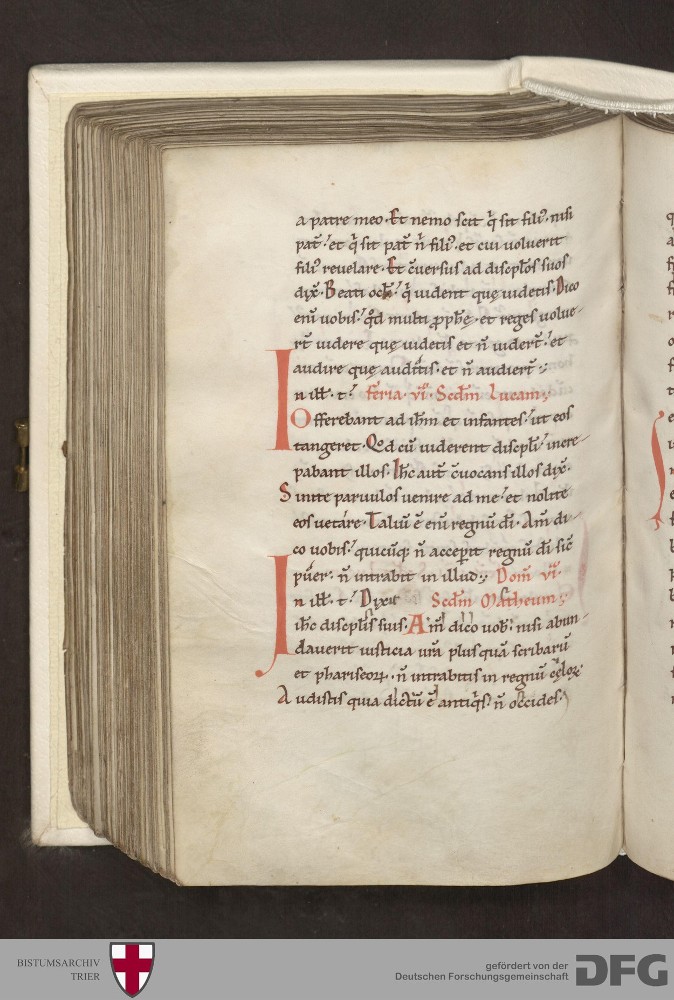 a patre meo. Et nemo scit q̇ sit fili᷒. nisi
pat̄. et q̇ sit pat̄ n̄ fili᷒. et cui uoluerit
fili᷒ reuelare. Et c̄uersus ad discipl̄os suos
dix̄. Beati ocl̄i. q̇ uident quę uidetis. Dico
eni᷒ uobis. qd̄ multi ꝓpħę. et reges uolue-
rt̄ uidere quę uidetis et n̄ uidert̄. et
audire quę auditis. et n̄ audiert̄.
In ill̄. t᷒. feria. vi. Scdm̄ lucam.
Offerebant ad ih̄m et infantes. ut eos
tangeret. Qd̄ cū uiderent discipl̄i. incre-
pabant illos. Ih̄c aut̄ c̄uocans illos dix̄.
Sinite paruulos uenire ad me. et nolite
eos uetare. Talium ē eni᷒ regnū dī. Am̄ di-
co uobis. quicūq; n̄ acceperit regnū dī sic̄
puer. n̄ intrabit in illud. Dom̄ vi.
In ill̄. t᷒. Dixit Scdm̄ Matheum.
ih̄c discipl̄is suis. Am̄ dico uob᷒. nisi abun-
dauerit iusticia ur̄a plusquā scribarū
et phariseoꝝ. n̄ intrabitis in regnū cęloꝝ.
Audistis quia dictū ē antiq̇s. n̄ occides.
BISTUMSARCHIV
TRIER
gefördert von der
Deutschen Forschungsgemeinschaft
DFG